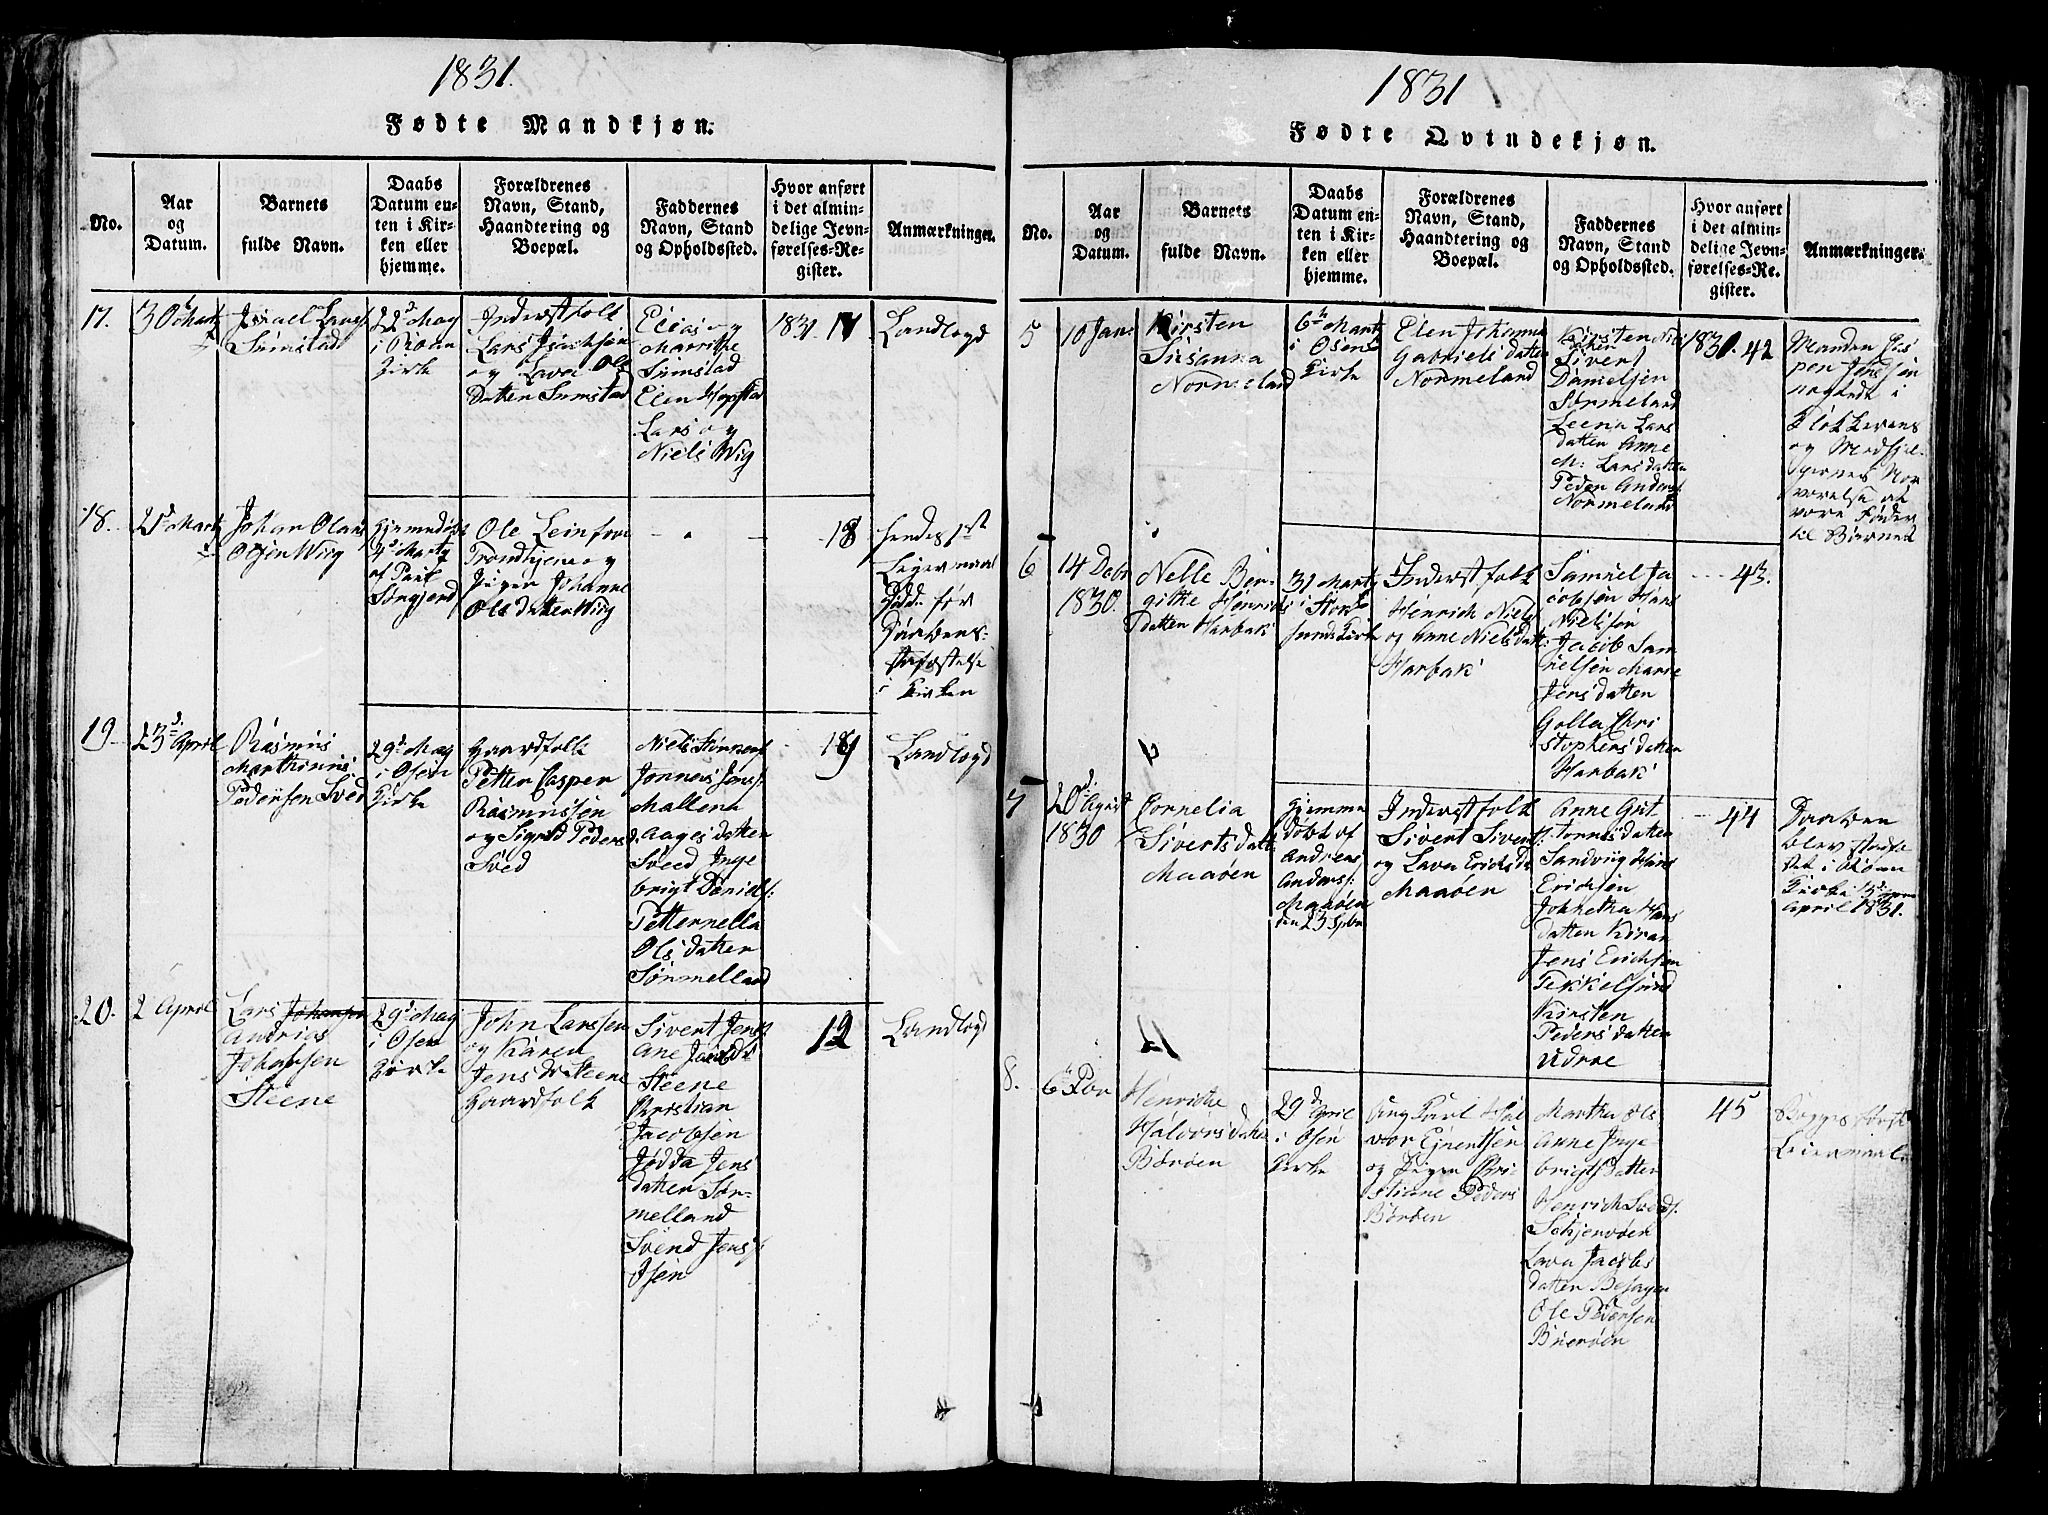 1831.
Fødte Mandkjøn.
No.
Aar
og
Datum.
Barnets
fulde Navn.
Daabs
Datum en-
ten i Kir-
ken eller
hjemme.
Forældrenes
Navn, Stand,
Haandtering og
Boepæl.
Faddernes
Navn, Stand
og Opholdssted.
Hvor anført
i det almin-
delige Jevn-
førelses-Re-
gister.
Anmærkninger.
17.
30 Martz
Lars
Sumstad
22d May
i Roan
Kirke
Inderstfolk
Lars
og Lava Ols
Datter Sumstad
Elias og
Marrithe
Sumstad
Elen Hopstad
Lars og
Niels Wiig
1831. 17
Landlogd
18.
21d Martz
Johan Olaus
Olsen Wiig
Hjemmedøbt
4d Martz
af Paul
Ole Leinfou
Trondhjem og
Pigen Johanne
Ols datter Wiig
- . -
18
hendes 1st
Leiermaal
Døde før
Daabens
stadfæstelse
i Kirken
19
23d April
Rasmus
Marthinus
Pedersen Sved
29d May
i Osen
Kirke
Gaardfolk
Petter Casper
Rasmussen
og Sigrid Peders d.
Sved
Niels
Jonnes Jonss:
Mallena
Aages datter
Sveed Inge
brigt Daniels:
Petternella
Ols datter
Sørmelland
19
Landlogd
20.
2 April
Lars Johansen
Andrias
Johansen
Steene
29d May
i Osen
Kirke
John Larssen
og Karen
Jens dr Steene
Gaardfolk
Sivert Jens
Ane Jacobs
Steene
Christian
Jacobsen
Jødda Jens
datter Sør-
melland
Svend Jens:
Osen
19
Landlogd
1831
Fødte Qvindekjøn.
No.
Aar
og
Datum.
Barnets
fulde Navn.
Daabs
Datum en-
ten i Kir-
ken eller
hjemme.
Forældrenes
Navn, Stand,
Haandtering og
Boepæl.
Faddernes
Navn, Stand
og Opholdssted.
Hvor anført
i det almin-
delige Jevn-
førelses-Re-
gister.
Anmærkninger.
5
10 Jan:
Kirsten
Susanna
Normeland
6h Martz
i Osens
Kirke
Elen Johanna
Gabriels datter
Normeland
Kirsten
Sivert
Danielsen
Sørmeland
Leena Lars
datter Anne
M: Lars datter
Peder Anders:
Normeland
1831. 42
Manden Jes
pen
nægtede i
og Medhjel-
pernes Nær
værelse at
være Fader
til Barnet
6
14 Debr
1830.
Nelle Ber-
githe Henrichs
datter Harbak
31 Martz
i Stok
sund Kirke
Inderst folk
Henrich Niels
og Anne Niels datt:
Harbak
Samuel Ja
cobsen Hans
Nielssøn
Jacob Sam
uelsen Marie
Jens datter
Golla Chri
stophers datter
Harbak
43.
7
20d Agust
1830
Cornelia
Siverts datt
Maaøen
Hjemme
døbt af
Andreas
Anders:
Maaøen
den 23 Spbr
Inderst folk
Sivert Sivert
og Lava Erichs D.
Maaøen
Anne Gut
torms datter
Sandviig Hans
Erichsen
Johnetha Hans
datter Kiran
Jens Erichsen
Tekkelsund
Kirsten
Peders datter
Udroe
44
Daaben
blev stadfæ
stet i Roan
Kirke 15d
April 1831.
8.
6h
Henrikke
Halvors datter
Børøen
29d April
i Osen
Kirke
Ung Karl Hal
vor Ejnertsen
og Pigen Chri
stiane Peders
Børøen
Martha Ols
Anne Inge
brigts datter
Henrich Svends:
Schjervøen
Lava Jacobs
datter Besager
Ole Pedersen
Buerøen
45
Begges første
Leiermaal